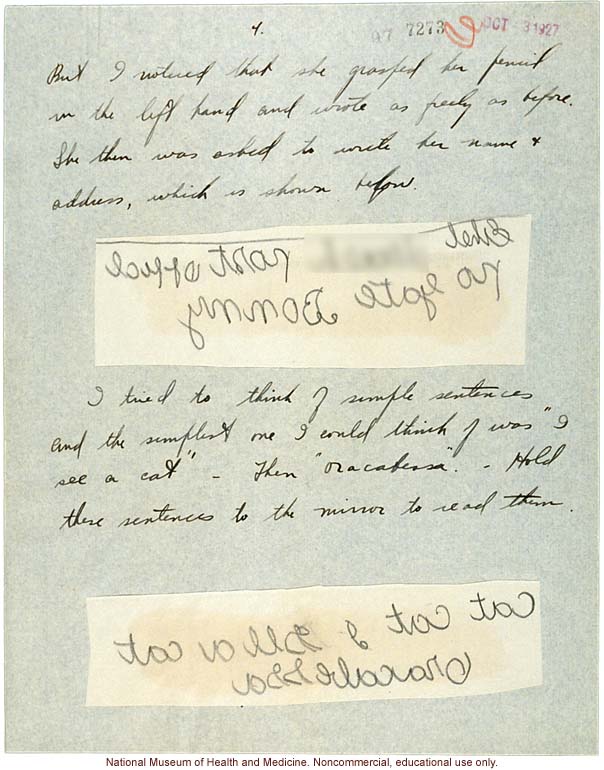 4.
7273
OCT 31927
But I noticed that she grasped her pencil
in the left hand and wrote as freely as before.
She then was asked to write her name &
address, which is shown below.
Ethel
post office
Bonny
I tried to think of simple sentences
and the simplest one I could think of was "I
see a cat" - Then "Oracabessa". - Hold
these sentences to the mirror to read them.
cat cat I see a cat
Oracabessa
National Museum of Health and Medicine. Noncommercial, educational use only.